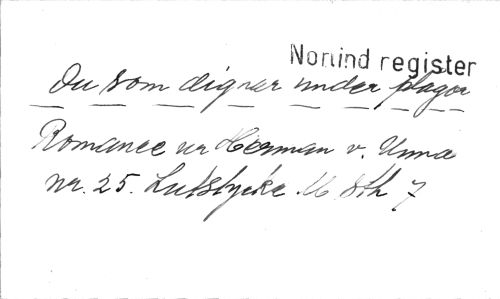 Nonind register
Du som dignar under plågor
Romance ur Herman v. Unna
nr. 25. Lutstycke M 8th 7